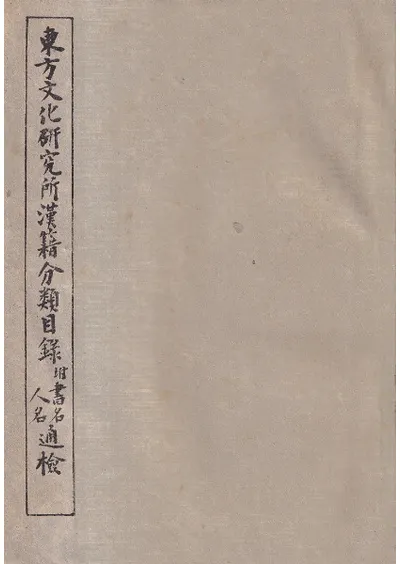 東方文化研究所漢籍分類目錄
坿書名
人名
通檢